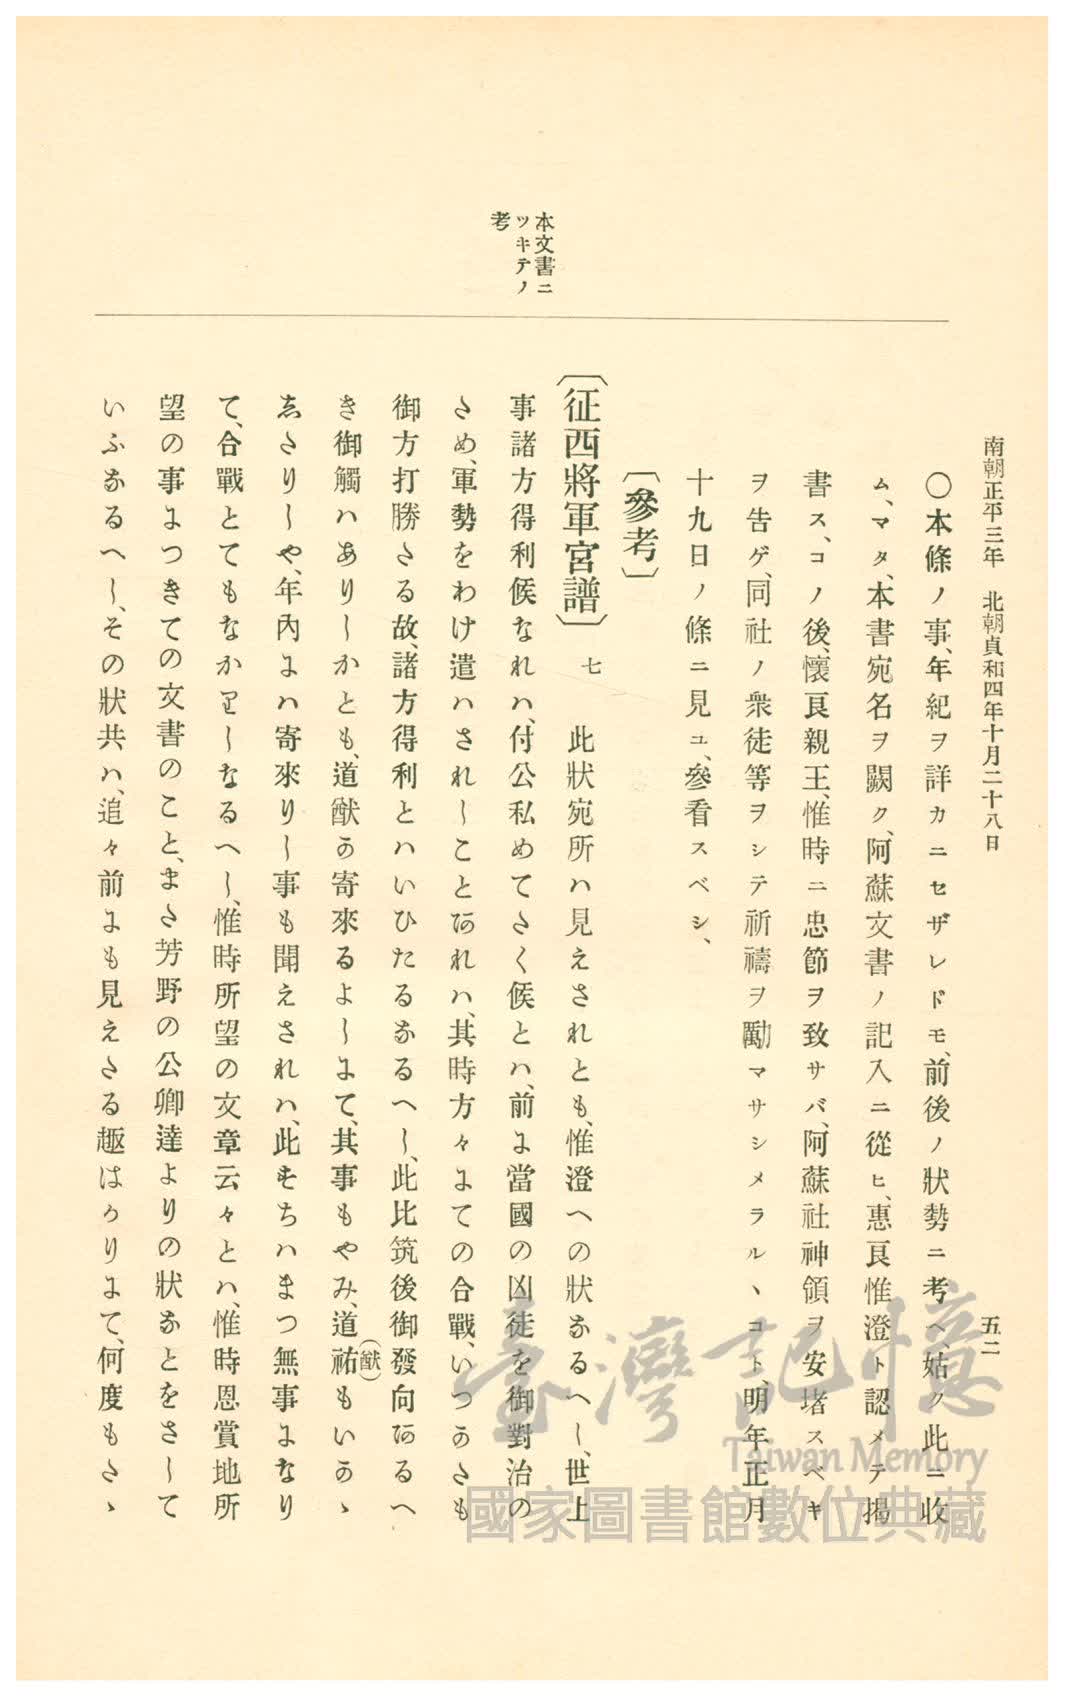 南朝正平三年 北朝貞和四年十月二十八日 五二
〇本條ノ事、年紀ヲ詳カニセザレドモ、前後ノ狀勢ニ考ヘ、姑ク此ニ收
ム、マタ、本書宛名ヲ闕ク、阿蘇文書ノ記入ニ從ヒ、惠良惟澄ト認メテ揭
書ス、コノ後、懷良親王、惟時ニ忠節ヲ致サバ、阿蘇社神領ヲ安堵スベキ
ヲ告ゲ、同社ノ衆徒等ヲシテ祈禱ヲ勵マサシメラルヽコト、明年正月
十九日ノ條ニ見ユ、參看スベシ、
〔參考〕
本文書ニ
ツキテノ
考
〔征西將軍宮譜〕七 此狀宛所ハ見えされとも、惟澄への狀なるへし、世上
事諸方得利候なれハ、付公私めてたく候とハ、前に當國の凶徒を御對治の
ため、軍勢をわけ遣ハされしことあれハ、其時方々にての合戰、いつかたも
御方打勝たる故、諸方得利とハいひたるなるへし、此比筑後御發向あるへ
き御觸ハありしかとも、道猷か寄來るよしにて、其事もやみ、道祐(猷)もいかゝ
志たりしや、年內にハ寄來りし事も聞えされハ、此をちハまつ無事になり
て、合戰とてもなかりしなるへし、惟時所望の文章云々とハ、惟時恩賞地所
望の事につきての文書のこと、また芳野の公卿達よりの狀なとをさして
いふなるへし、その狀共ハ、追々前にも見えたる趣はかりにて、何度もたゝ
臺灣記憶
Taiwan Memory
國家圖書館數位典藏